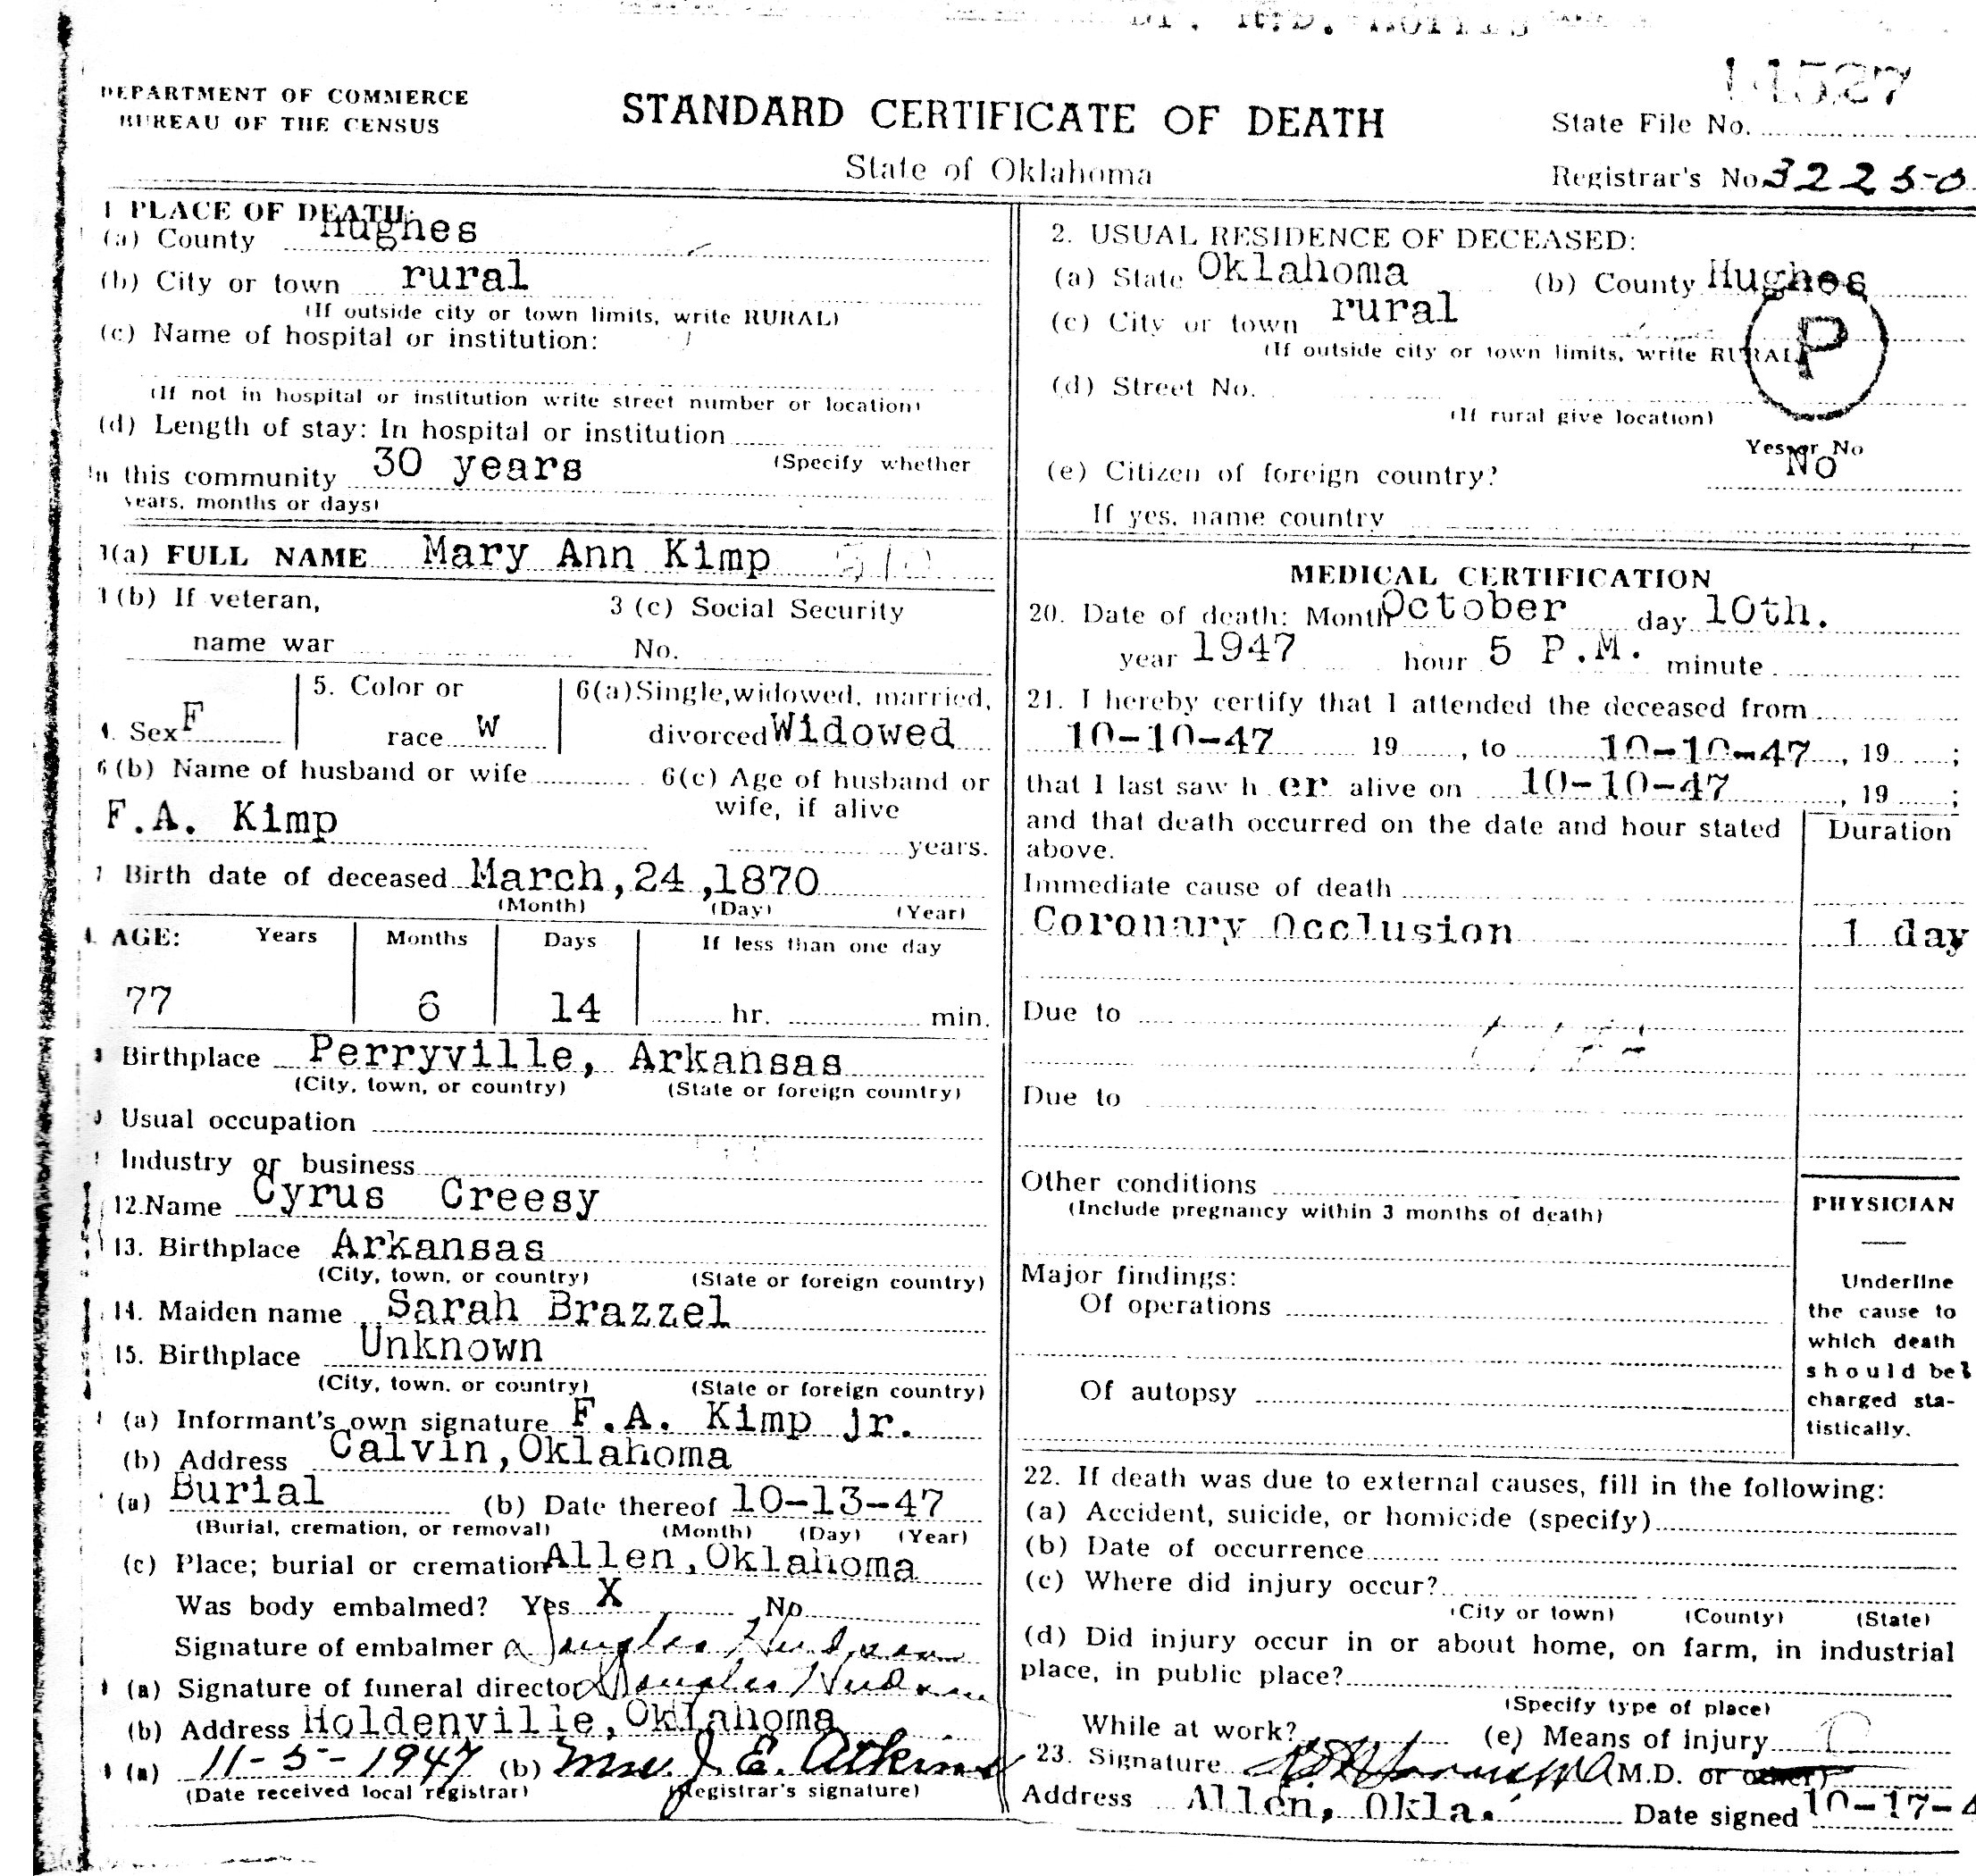 DEPARTMENT OF COMMERCE
BUREAU OF THE CENSUS
STANDARD CERTIFICATE OF DEATH
State of Oklahoma
State File No. 14527
Registrar's No. 32250
1 PLACE OF DEATH:
(a) County Hughes
(b) City or town rural
(If outside city or town limits, write RURAL)
(c) Name of hospital or institution:
(If not in hospital or institution write street number or location)
(d) Length of stay: In hospital or institution
(Specify whether
In this community 30 years
years, months or days)
2. USUAL RESIDENCE OF DECEASED:
(a) State Oklahoma (b) County Hughes
(c) City or town rural
(If outside city or town limits, write RURAL)
P
(d) Street No.
(If rural give location)
Yes or No
(e) Citizen of foreign country? No
If yes, name country
3(a) FULL NAME Mary Ann Kimp
3(b) If veteran, name war
3 (c) Social Security No.
4. Sex F
5. Color or race W
6(a)Single,widowed, married, divorced Widowed
6(b) Name of husband or wife
F.A. Kimp
6(c) Age of husband or wife, if alive
years.
7 Birth date of deceased March,24,1870
(Month) (Day) (Year)
AGE: Years Months Days If less than one day
77 6 14 hr. min.
Birthplace Perryville, Arkansas
(City, town, or country) (State or foreign country)
Usual occupation
Industry or business
12.Name Cyrus Creesy
13. Birthplace Arkansas
(City, town, or country) (State or foreign country)
14. Maiden name Sarah Brazzel
15. Birthplace Unknown
(City, town, or country) (State or foreign country)
(a) Informant's own signature F.A. Kimp jr.
(b) Address Calvin,Oklahoma
(a) Burial (b) Date thereof 10-13-47
(Burial, cremation, or removal) (Month) (Day) (Year)
(c) Place; burial or cremation Allen,Oklahoma
Was body embalmed? Yes X No
Signature of embalmer Douglas Hudson
(a) Signature of funeral director Douglas Hudson
(b) Address Holdenville,Oklahoma
(a) 11-5-1947 (b) Mrs. J. E. Atkins
(Date received local registrar) (Registrar's signature)
MEDICAL CERTIFICATION
20. Date of death: Month October day 10th.
year 1947 hour 5 P.M. minute
21. I hereby certify that I attended the deceased from
10-10-47 19 , to 10-10-47 , 19 ;
that I last saw h er alive on 10-10-47 , 19 ;
and that death occurred on the date and hour stated above.
Duration
Immediate cause of death
Coronary Occlusion 1 day
Due to
Due to
Other conditions
(Include pregnancy within 3 months of death)
Major findings:
Of operations
Of autopsy
PHYSICIAN
Underline
the cause to
which death
should be
charged sta-
tistically.
22. If death was due to external causes, fill in the following:
(a) Accident, suicide, or homicide (specify)
(b) Date of occurrence
(c) Where did injury occur?
(City or town) (County) (State)
(d) Did injury occur in or about home, on farm, in industrial
place, in public place?
(Specify type of place)
While at work? (e) Means of injury
23. Signature M.D. or other)
Address Allen, Okla. Date signed 10-17-4